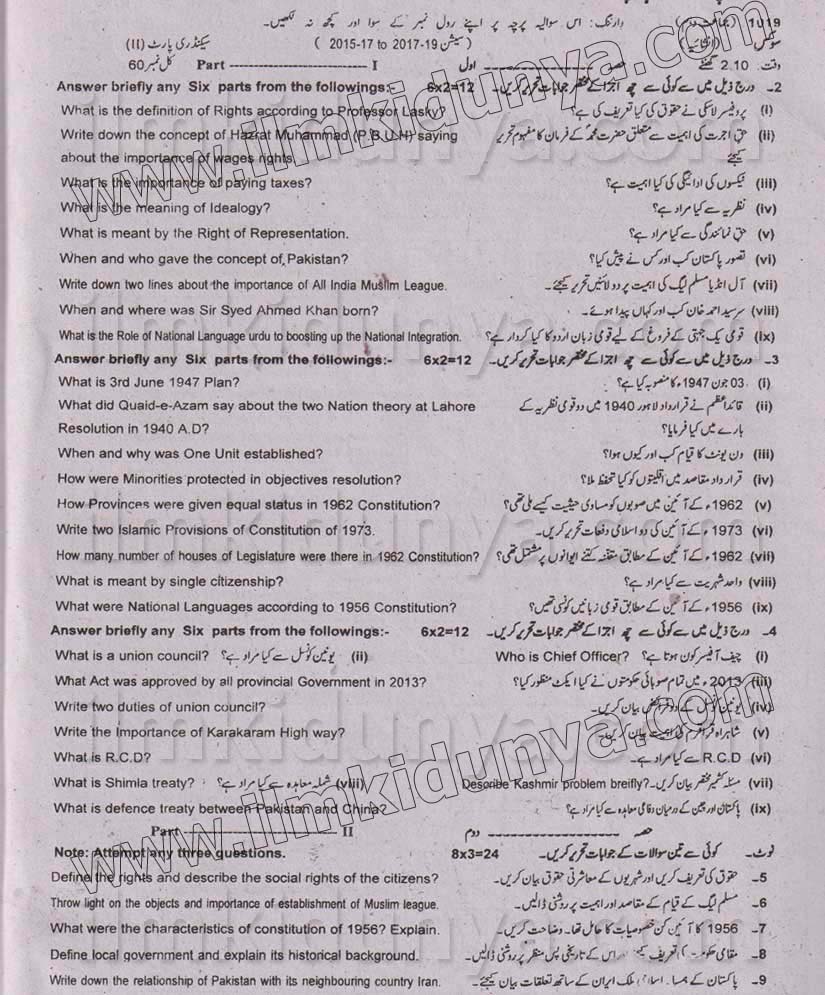 1019 (جماعت دہم) وارننگ: اس سوالیہ پرچہ پر اپنے رول نمبر کے سوا اور کچھ نہ لکھیں۔
سوکس (انشائیہ) (سیشن 2015-17 to 2017-19) سیکنڈری پارٹ (II)
وقت 2.10 گھنٹے حصہ اول Part I کل نمبر 60
Answer briefly any Six parts from the followings:- 6x2=12 2۔ درج ذیل میں سے کوئی سے چھ اجزا کے مختصر جوابات تحریر کریں۔
What is the definition of Rights according to Professor Lasky? (i) پروفیسر لاسکی نے حقوق کی کیا تعریف کی ہے؟
Write down the concept of Hazrat Muhammad (P.B.U.H) saying (ii) حق اجرت کی اہمیت سے متعلق حضرت محمدؐ کے فرمان کا مفہوم تحریر
about the importance of wages rights. کیجئے
What is the importance of paying taxes? (iii) ٹیکسوں کی ادائیگی کی کیا اہمیت ہے؟
What is the meaning of Idealogy? (iv) نظریہ سے کیا مراد ہے؟
What is meant by the Right of Representation. (v) حق نمائندگی سے کیا مراد ہے؟
When and who gave the concept of Pakistan? (vi) تصور پاکستان کب اور کس نے پیش کیا؟
Write down two lines about the importance of All India Muslim League. (vii) آل انڈیا مسلم لیگ کی اہمیت پر دو لائنیں تحریر کیجئے۔
When and where was Sir Syed Ahmed Khan born? (viii) سرسید احمد خان کب اور کہاں پیدا ہوئے۔
What is the Role of National Language urdu to boosting up the National Integration. (ix) قومی یک جہتی کے فروغ کے لیے قومی زبان اردو کا کیا کردار ہے؟
Answer briefly any Six parts from the followings:- 6x2=12 3۔ درج ذیل میں سے کوئی سے چھ اجزا کے مختصر جوابات تحریر کریں۔
What is 3rd June 1947 Plan? (i) 03 جون 1947ء کا منصوبہ کیا ہے؟
What did Quaid-e-Azam say about the two Nation theory at Lahore (ii) قائداعظم نے قرارداد لاہور 1940 میں دو قومی نظریہ کے
Resolution in 1940 A.D? بارے میں کیا فرمایا؟
When and why was One Unit established? (iii) ون یونٹ کا قیام کب اور کیوں ہوا؟
How were Minorities protected in objectives resolution? (iv) قرارداد مقاصد میں اقلیتوں کو کیا تحفظ ملا؟
How Provinces were given equal status in 1962 Constitution? (v) 1962ء کے آئین میں صوبوں کو مساوی حیثیت کیسے ملی تھی؟
Write two Islamic Provisions of Constitution of 1973. (vi) 1973ء کے آئین کی دو اسلامی دفعات تحریر کریں۔
How many number of houses of Legislature were there in 1962 Constitution? (vii) 1962ء کے آئین کے مطابق مقننہ کتنے ایوانوں پر مشتمل تھی؟
What is meant by single citizenship? (viii) واحد شہریت سے کیا مراد ہے؟
What were National Languages according to 1956 Constitution? (ix) 1956ء کے آئین کے مطابق قومی زبانیں کونسی تھیں؟
Answer briefly any Six parts from the followings:- 6x2=12 4۔ درج ذیل میں سے کوئی سے چھ اجزا کے مختصر جوابات تحریر کریں۔
What is a union council? یونین کونسل سے کیا مراد ہے؟ (ii) Who is Chief Officer? چیف آفیسر کون ہوتا ہے؟ (i)
What Act was approved by all provincial Government in 2013? (iii) 2013ء میں تمام صوبائی حکومتوں نے کیا ایکٹ منظور کیا؟
Write two duties of union council? (iv) یونین کونسل کے دو فرائض بیان کریں۔
Write the Importance of Karakaram High way? (v) شاہراہ قراقرم کی اہمیت بیان کریں۔
What is R.C.D? (vi) R.C.D سے کیا مراد ہے۔
What is Shimla treaty? شملہ معاہدہ سے کیا مراد ہے؟ (viii) Describe Kashmir problem breifly? مسئلہ کشمیر مختصر بیان کریں۔ (vii)
What is defence treaty between Pakistan and China? (ix) پاکستان اور چین کے درمیان دفاعی معاہدہ سے کیا مراد ہے؟
Part II حصہ دوم
Note: Attempt any three questions. 8x3=24 نوٹ۔ کوئی سے تین سوالات کے جوابات تحریر کریں۔
Define the rights and describe the social rights of the citizens? 5۔ حقوق کی تعریف کریں اور شہریوں کے معاشرتی حقوق بیان کریں۔
Throw light on the objects and importance of establishment of Muslim league. 6۔ مسلم لیگ کے قیام کے مقاصد اور اہمیت پر روشنی ڈالیں۔
What were the characteristics of constitution of 1956? Explain. 7۔ 1956 کا آئین کن خصوصیات کا حامل تھا۔ وضاحت کریں۔
Define local government and explain its historical background. 8۔ مقامی حکومت کی تعریف کیجئے اور اس کے تاریخی پس منظر پر روشنی ڈالیں۔
Write down the relationship of Pakistan with its neighbouring country Iran. 9۔ پاکستان کے ہمسایہ اسلامی ملک ایران کے ساتھ تعلقات بیان کیجئے۔
www.ilmkidunya.com
www.ilmkidunya.com
ilmkidunya.com
ilmkidunya.com
ilmkidunya.com
ilmkidunya.com